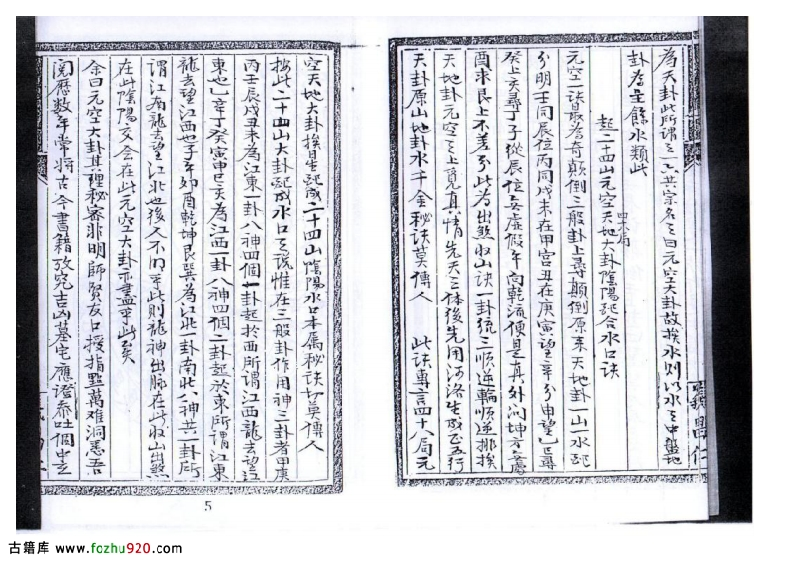 為天卦此所謂三元共宗名之曰元空大卦故挨水則以水之中盤地
卦為主餘水類此
起二十四山元空天地大卦陰陽配合水口訣
四大局
元空一訣最為奇顛倒三般卦上尋顛倒原來天地卦一山一水配
分明壬同辰位丙同戌未在甲宮丑在庚寅望辛兮申望乙巳尋
癸上亥尋丁子從辰位無虛假午向乾流便是真外問坤方無處
酉求艮上不差分此為出煞收山訣一卦統三順逆輪順逆排挨
天地卦元空之上覓真情先天之體後先用河洛生成正五行
天卦原山地卦水千金秘訣莫傳人 此訣專言四十八局元
空天地大卦挨星起成二十四山陰陽水口本屬秘訣切莫傳人
按此二十四山大卦起成水口之說惟在三般卦作用神三卦者甲庚
丙壬辰戌丑未為江東一卦八神四個一卦起於西所謂江西龍去望江
東也乙辛丁癸寅申巳亥為江西一卦八神四個二卦起於東所謂江東
龍去望江西也子午卯酉乾坤艮巽為江北一卦南北八神共一卦所
謂江南龍去望江北也後人不明乎此則龍神出脈在此收山出煞
在此陰陽交會在此元空大卦亦盡乎此矣
余曰元空大卦其理秘密非明師賢友口授指點萬難洞悉吾
閱歷數年常將古今書籍攷究吉凶墓宅應證泰吐個中玄
5
古籍库 www.fozhu920.com